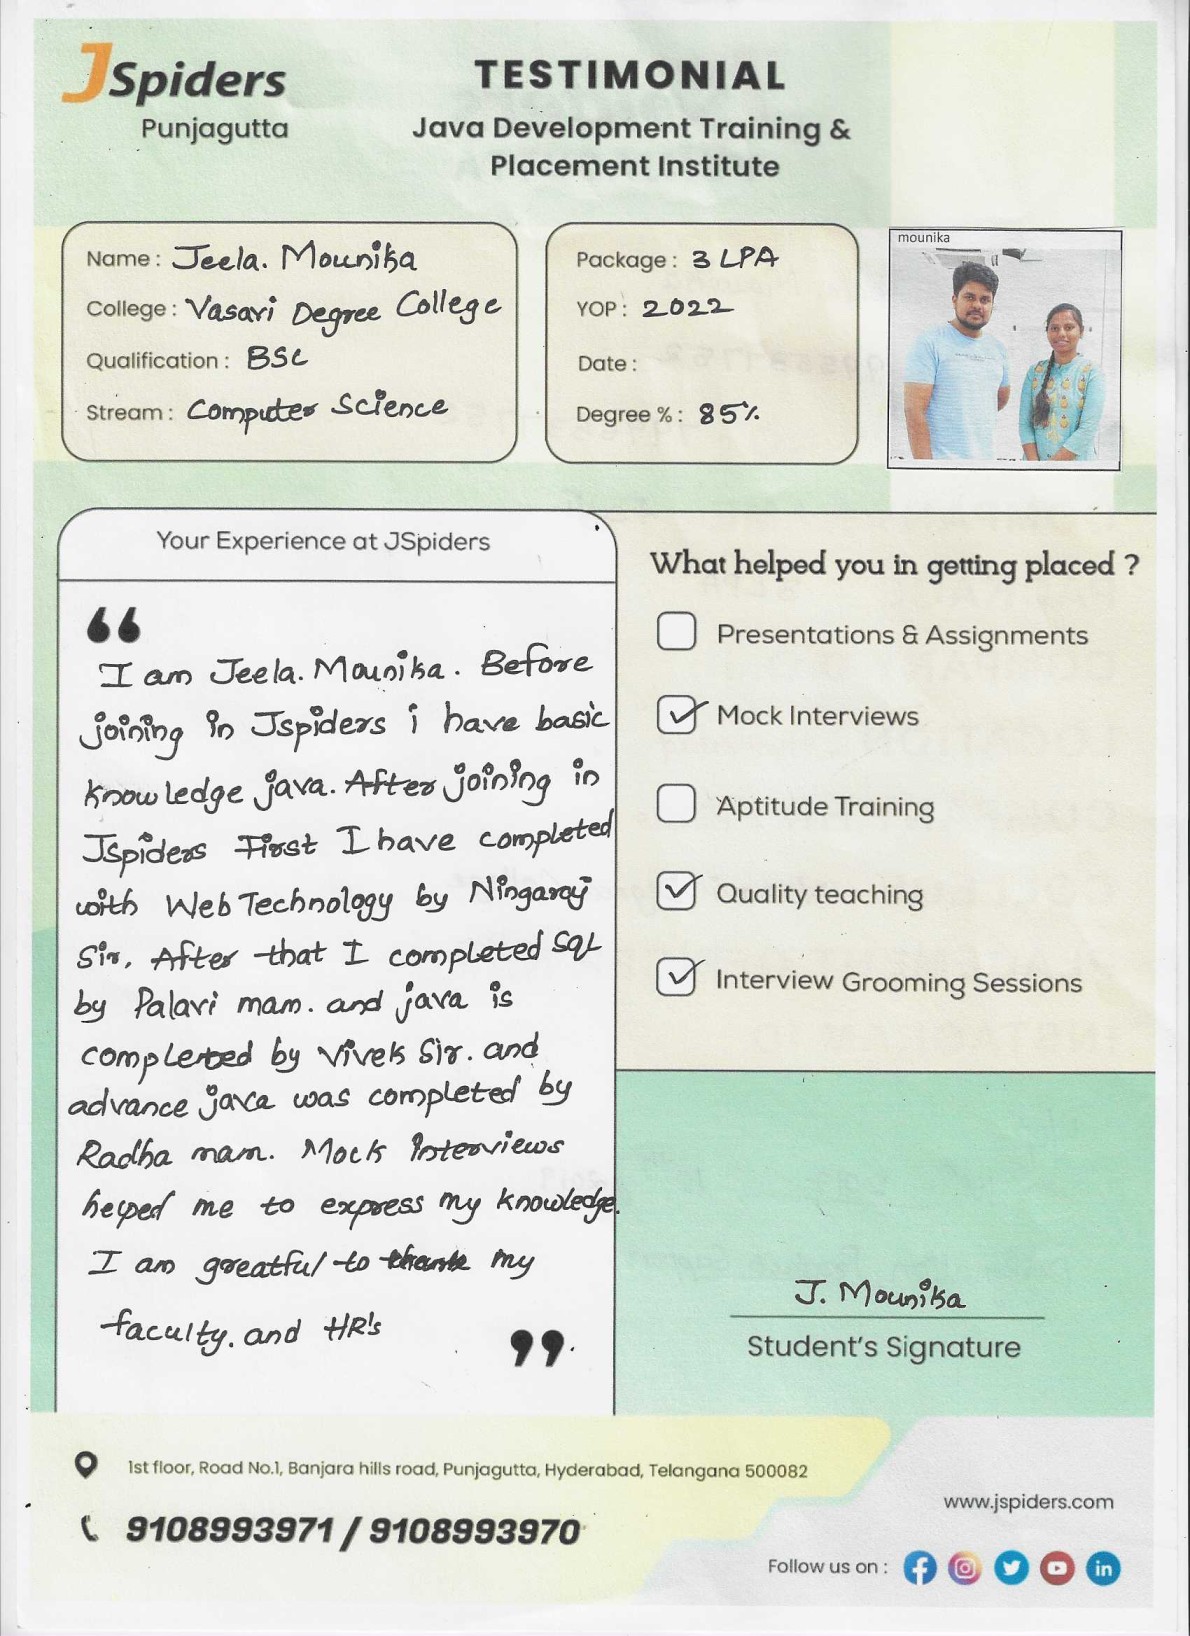 JSpiders
Punjagutta
TESTIMONIAL
Java Development Training &
Placement Institute
Name : Jeela. Mounika
College : Vasavi Degree College
Qualification : BSC
Stream : Computer Science
Package : 3 LPA
YOP : 2022
Date :
Degree % : 85%
mounika
Your Experience at JSpiders
“
I am Jeela. Mounika. Before
joining in Jspiders i have basic
knowledge java. After joining in
Jspiders First I have completed
with Web Technology by Ningaraj
Sir. After that I completed Sql
by Palavi mam. and java is
completed by Vivek Sir. and
advance java was completed by
Radha mam. Mock Interviews
helped me to express my knowledge.
I am greatful to thank my
faculty. and HR's
”
What helped you in getting placed ?
Presentations & Assignments
Mock Interviews
Aptitude Training
Quality teaching
Interview Grooming Sessions
J. Mounika
Student's Signature
1st floor, Road No.1, Banjara hills road, Punjagutta, Hyderabad, Telangana 500082
9108993971 / 9108993970
www.jspiders.com
Follow us on :